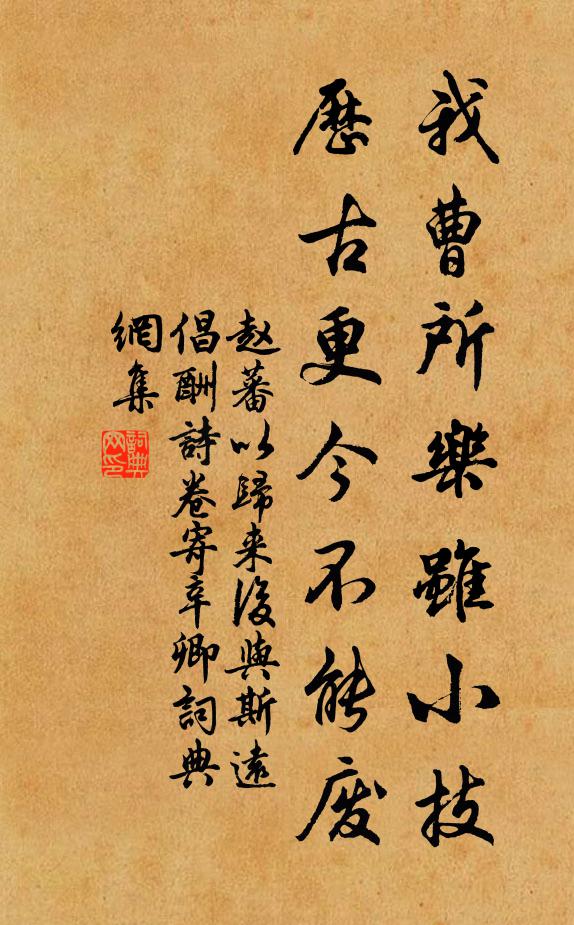 我曹所樂雖小技
歷古更今不能廢
赵蕃以歸来後與斯遠
倡酬詩卷寄辛卿詞典
網集
詞典網印